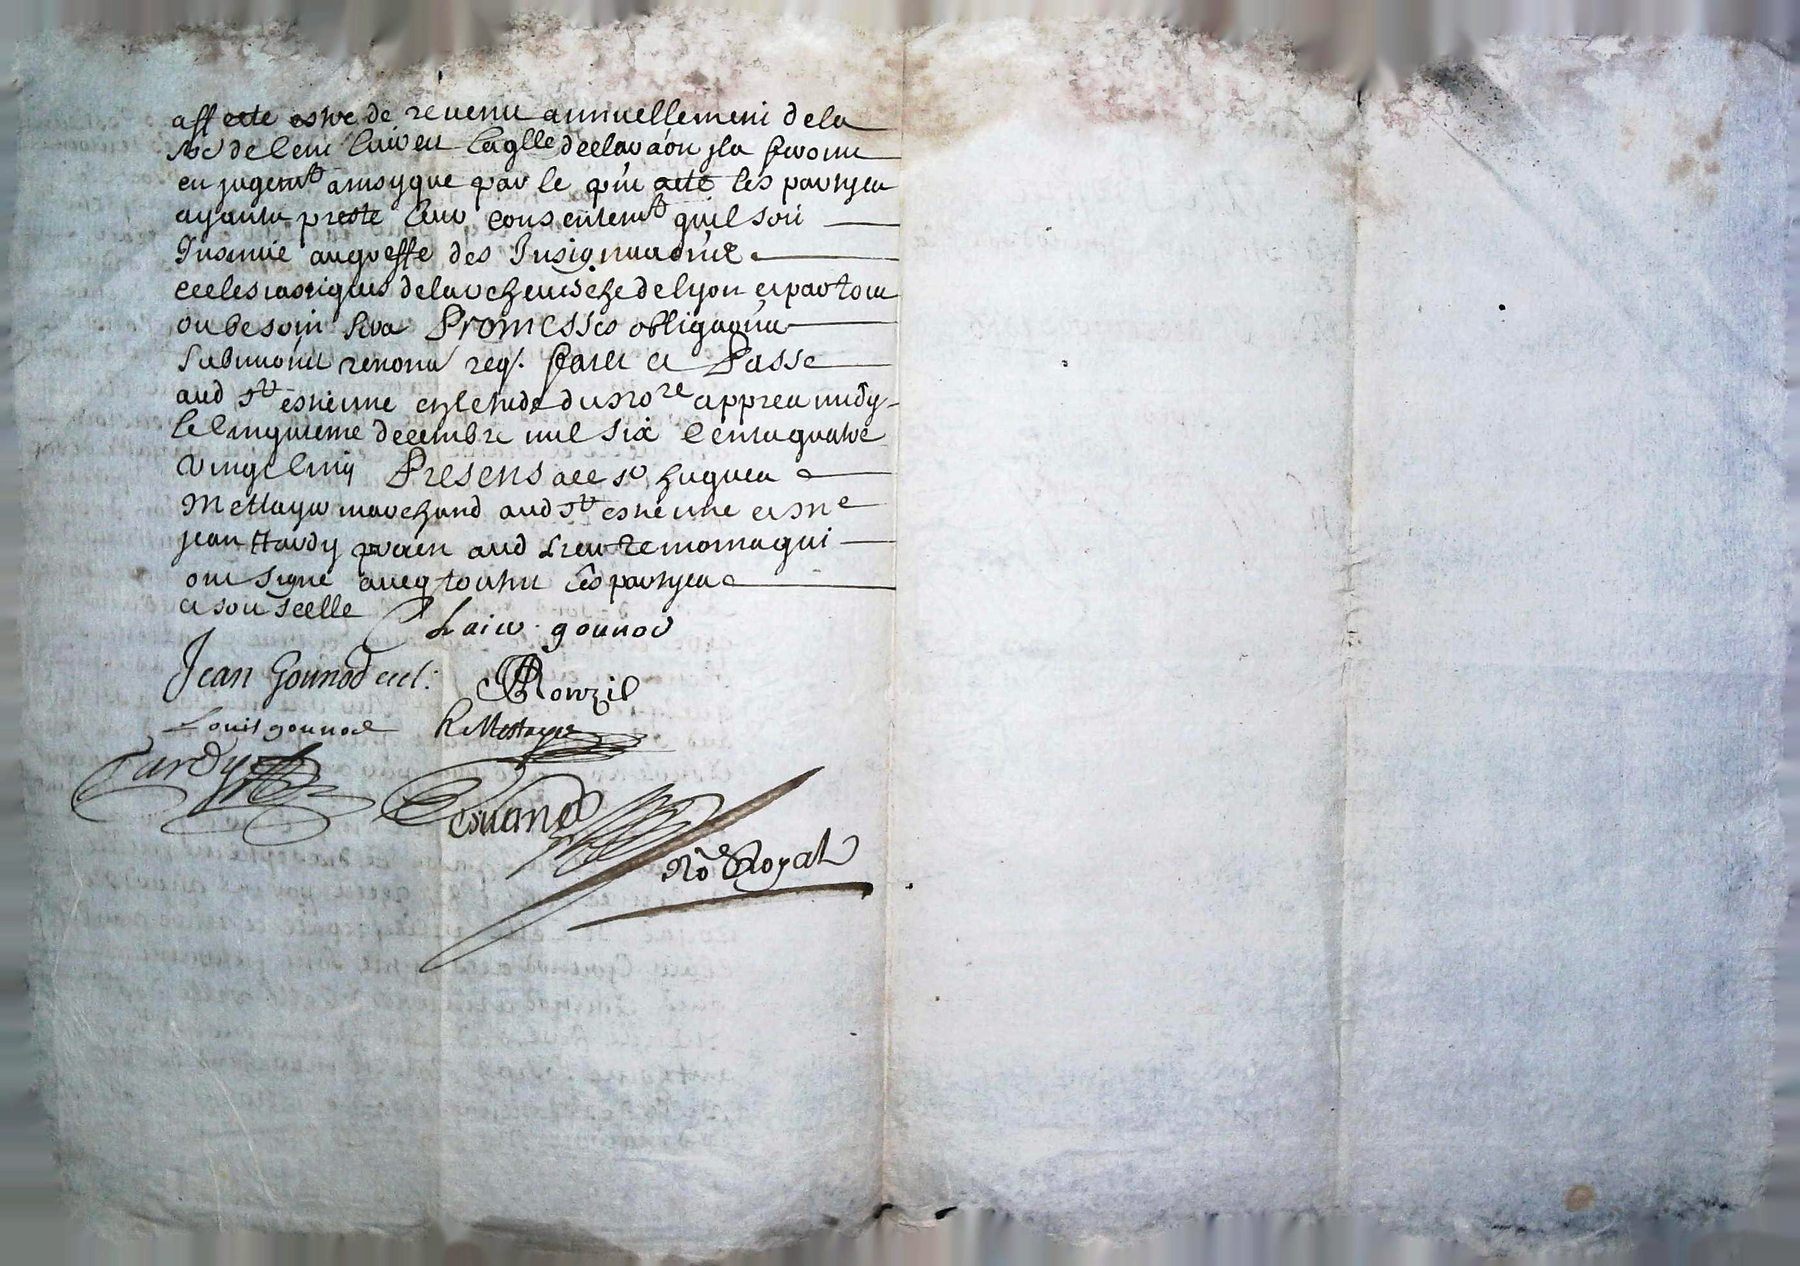 affecte estre de revenu annuellement de la
de leur laglle declaraon jla feront
en jugemt ainsy que par le pnt acte les partyes
ayants preste leur consentemt quil soit
Insinué au greffe des Insignuaons
ecclesiastiques de larchevesche de lyon et partout
ou besoin sera Promesses obligaons
submaons renons req. faict et Passe
aud st estienne estude du nore appres midy
le cinquieme decembre mil six cents quatre
vingt cinq Presens sr hugues
Mettayer marchand aud st estienne et me
jean tardy aud lieu temoins qui
ont signé avecq toutes les partyes
et soit scelle
Claire gounod
Jean Gounod eccl:
Ronzil
Louis gounod h Mettayer
Tardy
No.e Royal